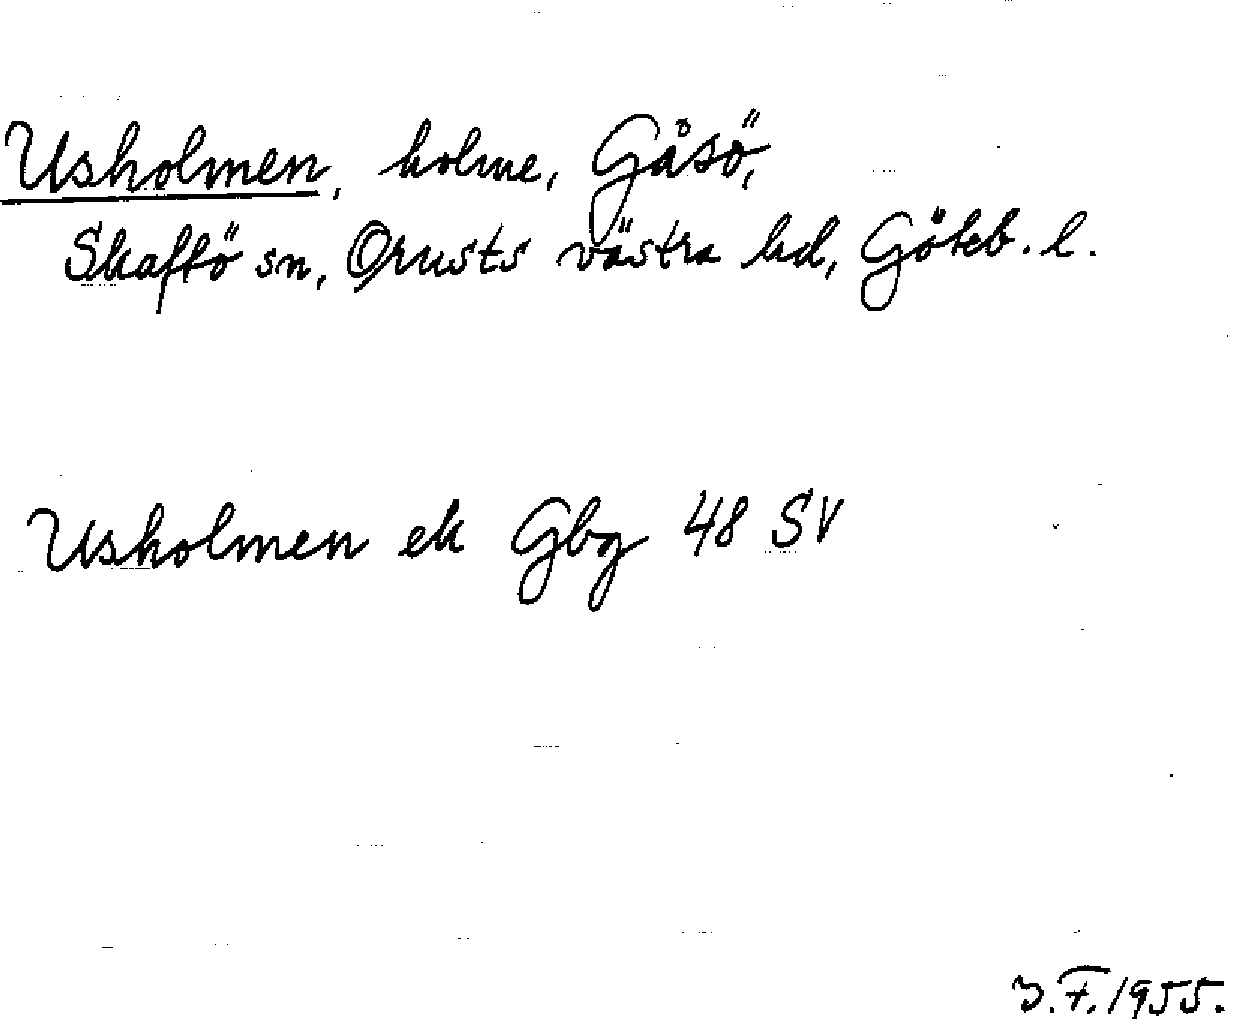 Usholmen, holme, Gåsö,
Skaftö sn, Orusts västra hd, Göteb. l.
Usholmen ek Gbg 48 SV
F. 1955.